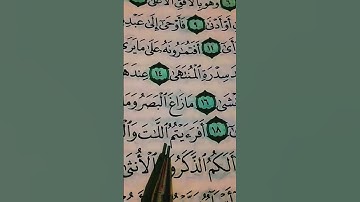 وَهُوَ بِالْأُفُقِ الْأَعْلَىٰ
أَوْ أَدْنَىٰ ٩ فَأَوْحَىٰ إِلَىٰ
١١ أَفَتُمَٰرُونَهُۥ عَلَىٰ مَا يَرَىٰ
سِدْرَةِ الْمُنتَهَىٰ ١٤ عِندَهَا
ـغْشَىٰ ١٦ مَا زَاغَ الْبَصَرُ وَمَا
١٨ أَفَرَءَيْتُمُ اللَّٰتَ وَالْـ
أَلَكُمُ الذَّكَرُ وَ الْأُنثَىٰ